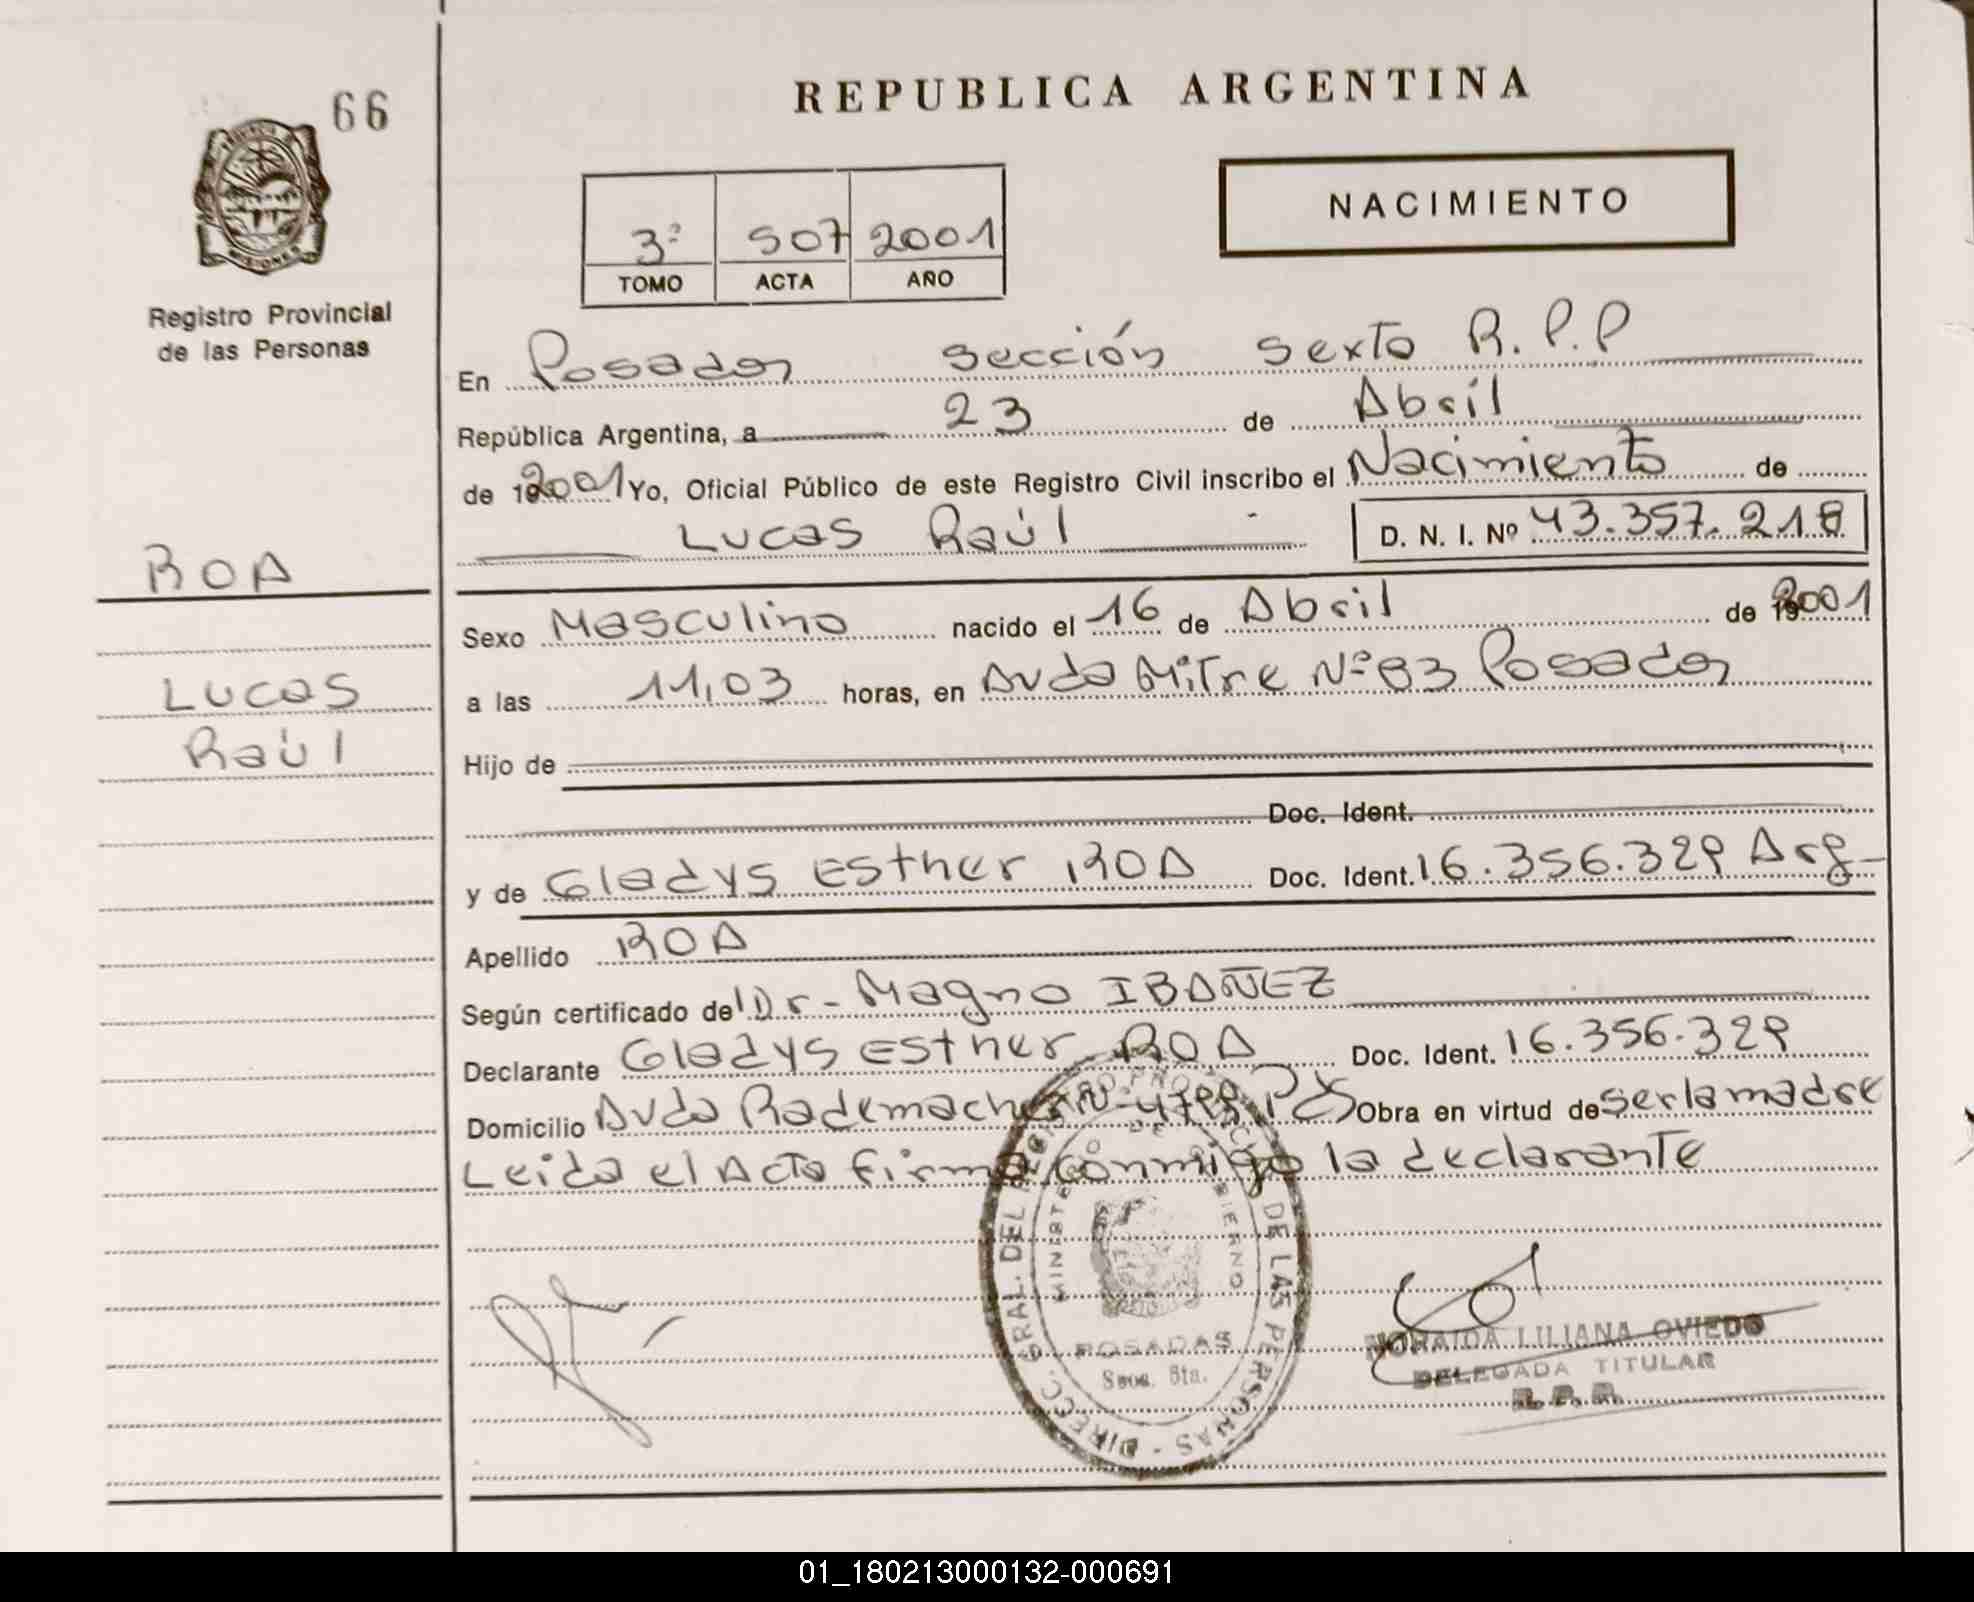 66
REPUBLICA ARGENTINA
NACIMIENTO
3º 507 2001
TOMO ACTA AÑO
MISIONES
Registro Provincial
de las Personas
En Posadas sección sexta R.P.P
República Argentina, a 23 de Abril
de 192001 Yo, Oficial Público de este Registro Civil inscribo el Nacimiento de
Lucas Raúl D. N. I. Nº 43.357.218
ROA
Lucas
Raúl
Sexo Masculino nacido el 16 de Abril de 192001
a las 11,03 horas, en Avda Mitre Nº 83 Posadas
Hijo de
Doc. Ident.
y de Gladys Esther ROA Doc. Ident. 16.356.329 Arg-
Apellido ROA
Según certificado del Dr- Magno IBAÑEZ
Declarante Gladys Esther ROA Doc. Ident. 16.356.329
Domicilio Avda Rademacher Nº Obra en virtud de ser la madre
Leida el Acta firma conmigo la declarante
DIRECC. GRAL. DEL REGISTRO PROVINCIAL DE LAS PERSONAS
MINISTERIO DE GOBIERNO
POSADAS
Secc. 6ta.
NORAIDA LILIANA OVIEDO
DELEGADA TITULAR
R.P.P.
01_180213000132-000691